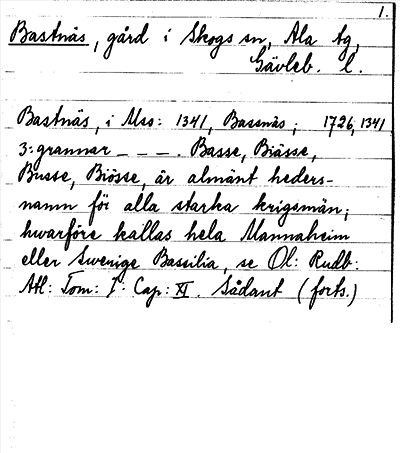 1.
Bastnäs, gård i Skogs sn, Ala tg,
Gävleb. l.
Bastnäs, i Mss: 1341, Bassnäs; 1726, 1341
3: grannar _ _ _. Basse, Biässe,
Busse, Biösse, är almänt heders-
namn för alla starka krigsmän;
hwarföre kallas hela Mannaheim
eller Swerige Bassilia, se Ol: Rudb:
Atl: Tom: I. Cap: XI. Sådant (forts.)